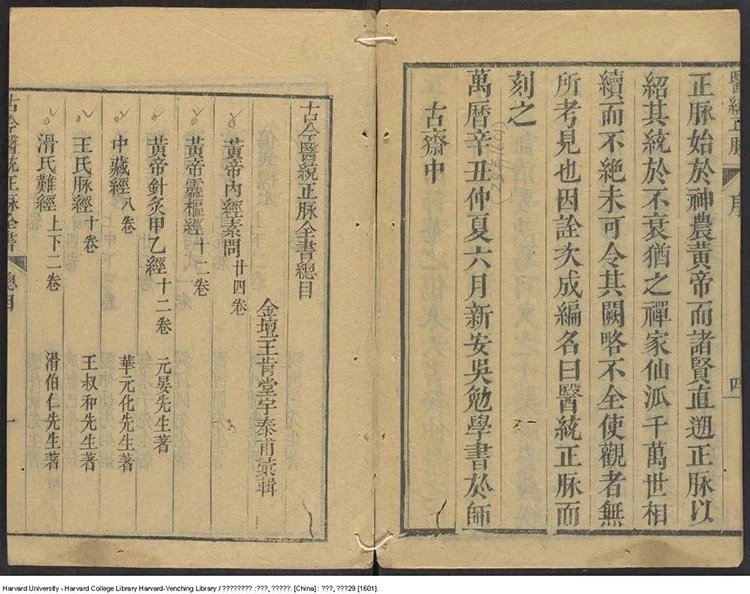 醫統正脉 序 四
正脉始於神農黄帝而諸賢直遡正脉以
紹其統於不衰猶之禪家仙派千萬世相
續而不絶未可令其闕略不全使觀者無
所考見也因詮次成編名曰醫統正脉而
刻之
萬曆辛丑仲夏六月新安吳勉學書於師
古齋中
古今醫統正脉全書總目
金壇王肯堂宇泰甫彚輯
黄帝内經素問 廿四卷
黄帝靈樞經 十二卷
黄帝針灸甲乙經 十二卷 元晏先生著
中藏經 八卷 華元化先生著
王氏脉經 十卷 王叔和先生著
滑氏難經 上下二卷 滑伯仁先生著
古今醫統正脉全書 總目 一
Harvard University - Harvard College Library Harvard-Yenching Library / ???????? :???, ?????. [China] : ???, ???29 [1601].